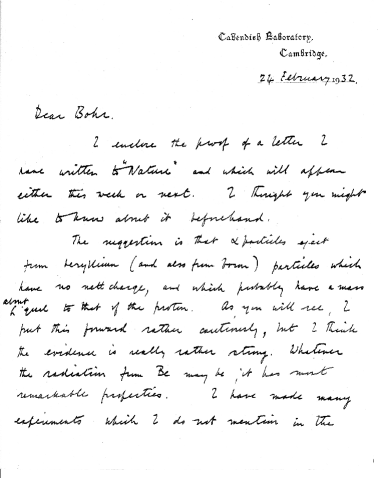 Cavendish Laboratory,
Cambridge.
24 February 1932.
Dear Bohr.
I enclose the proof of a letter I
have written to "Nature" and which will appear
either this week or next. I thought you might
like to know about it beforehand.
The suggestion is that α particles eject
from beryllium (and also from boron) particles which
have no nett charge, and which probably have a mass
about equal to that of the proton. As you will see, I
put this forward rather cautiously, but I think
the evidence is really rather strong. Whatever
the radiation from Be may be, it has most
remarkable properties. I have made many
experiments which I do not mention in the